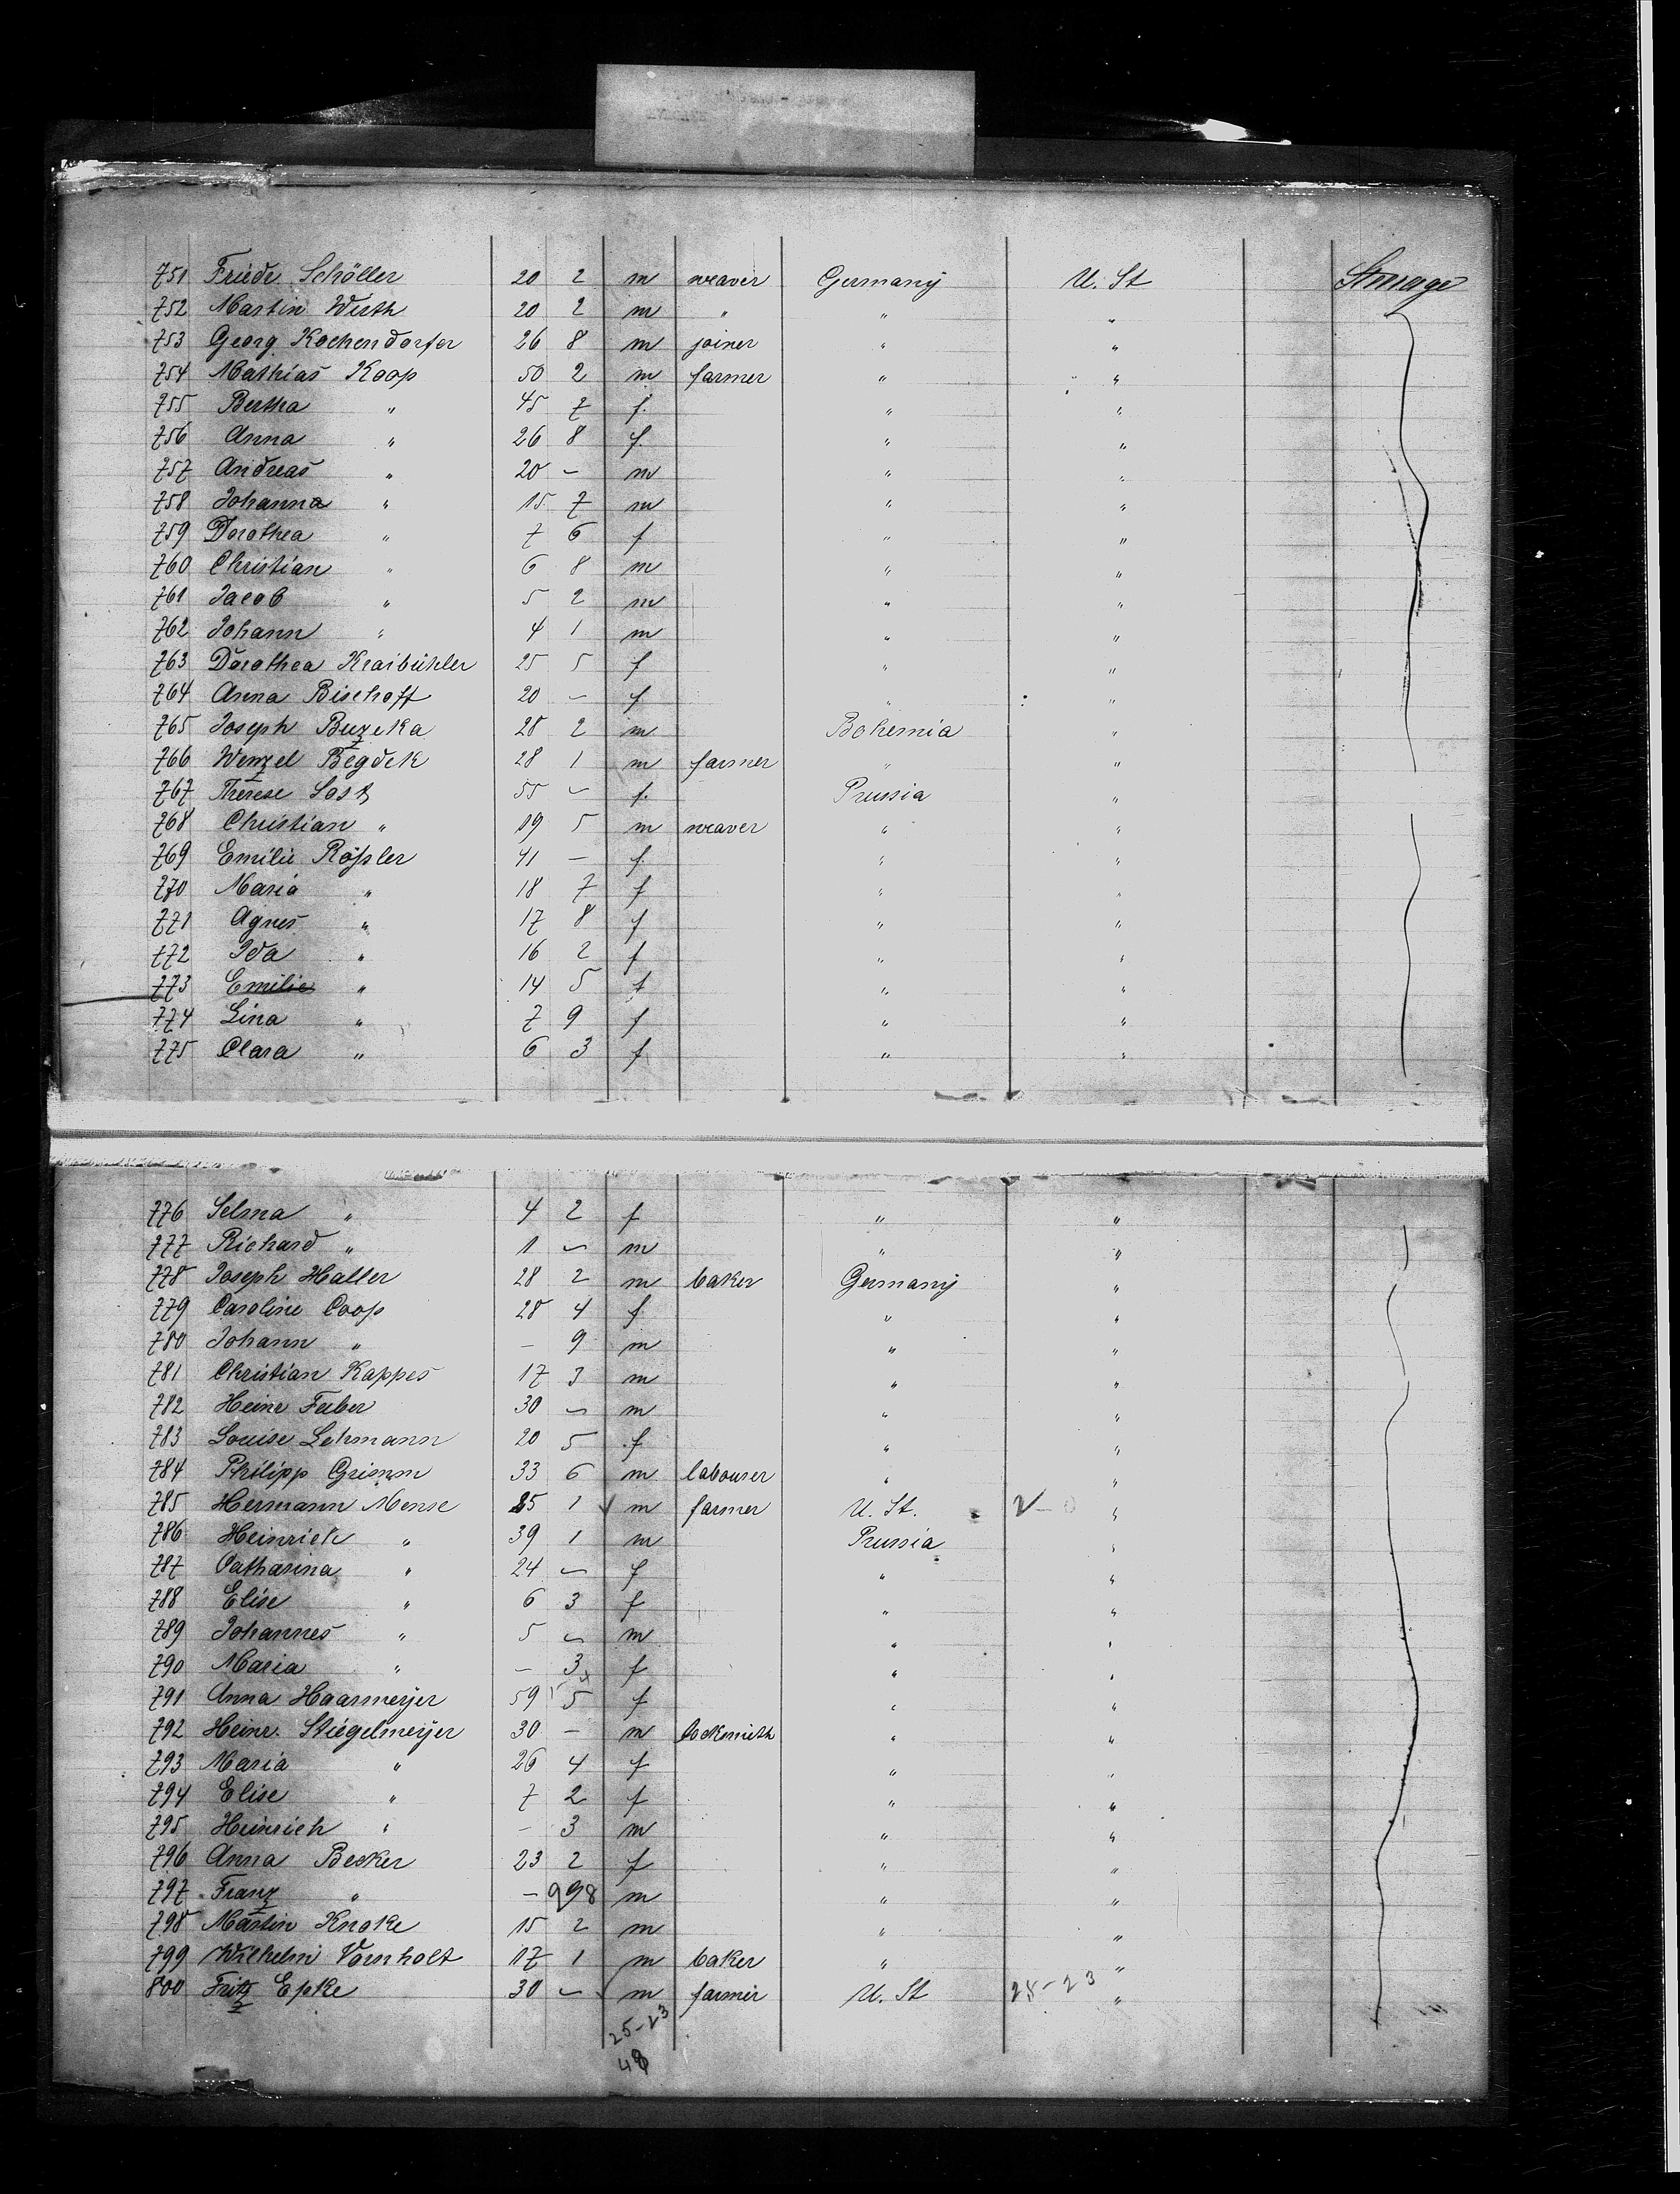 751 Friedr. Schöller 20 2 m weaver Germany U. St Steerage
752 Martin Wirth 20 2 m " " "
753 Georg Kochendorfer 26 8 m joiner " "
754 Mathias Koop 50 2 m farmer " "
755 Bertha " 45 7 f. " "
756 Anna " 26 8 f. " "
757 Andreas " 20 - m " "
758 Johanna " 15 7 m " "
759 Dorothea " 7 6 f " "
760 Christian " 6 8 m " "
761 Jacob " 5 2 m " "
762 Johann " 4 1 m " "
763 Dorothea Kraibühler 25 5 f " "
764 Anna Bischoff 20 - f " "
765 Joseph Buzeka 28 2 m Bohemia "
766 Wenzel Begdek 28 1 m farmer " "
767 Therese 55 - f. Prussia "
768 Christian " 19 5 m weaver " "
769 Emilie Rößler 41 - f. " "
770 Maria " 18 7 f " "
771 Agnes " 17 8 f " "
772 Ida " 16 2 f " "
773 Emilie " 14 5 f " "
774 Lina " 7 9 f " "
775 Clara " 6 3 f " "
776 Selma " 4 2 f " "
777 Richard " 1 - m " "
778 Joseph Haller 28 2 m baker Germany "
779 Caroline Coop 28 4 f " "
780 Johann " - 9 m " "
781 Christian Kappes 17 3 m " "
782 Heinr Faber 30 - m " "
783 Louise Lehmann 20 5 f " "
784 Philipp Grimm 33 6 m labourer " "
785 Hermann Mense 25 1 m farmer U. St. "
786 Heinrich " 39 1 m Prussia "
787 Catharina " 24 - f " "
788 Elise " 6 3 f " "
789 Johannes " 5 - m " "
790 Maria " - 3 f " "
791 Anna Haarmeyer 59 5 f " "
792 Heinr. Stiegelmeyer 30 - m locksmith " "
793 Maria " 26 4 f " "
794 Elise " 7 2 f " "
795 Heinrich " - 3 m " "
796 Anna Becker 23 2 f " "
797 Franz " - 998 m " "
798 Martin Knoke 15 2 m " "
799 Wilhelm Vornholt 17 1 m baker " "
800 Fritz Epke 30 - m farmer U. St 25-23 "
25-23
48